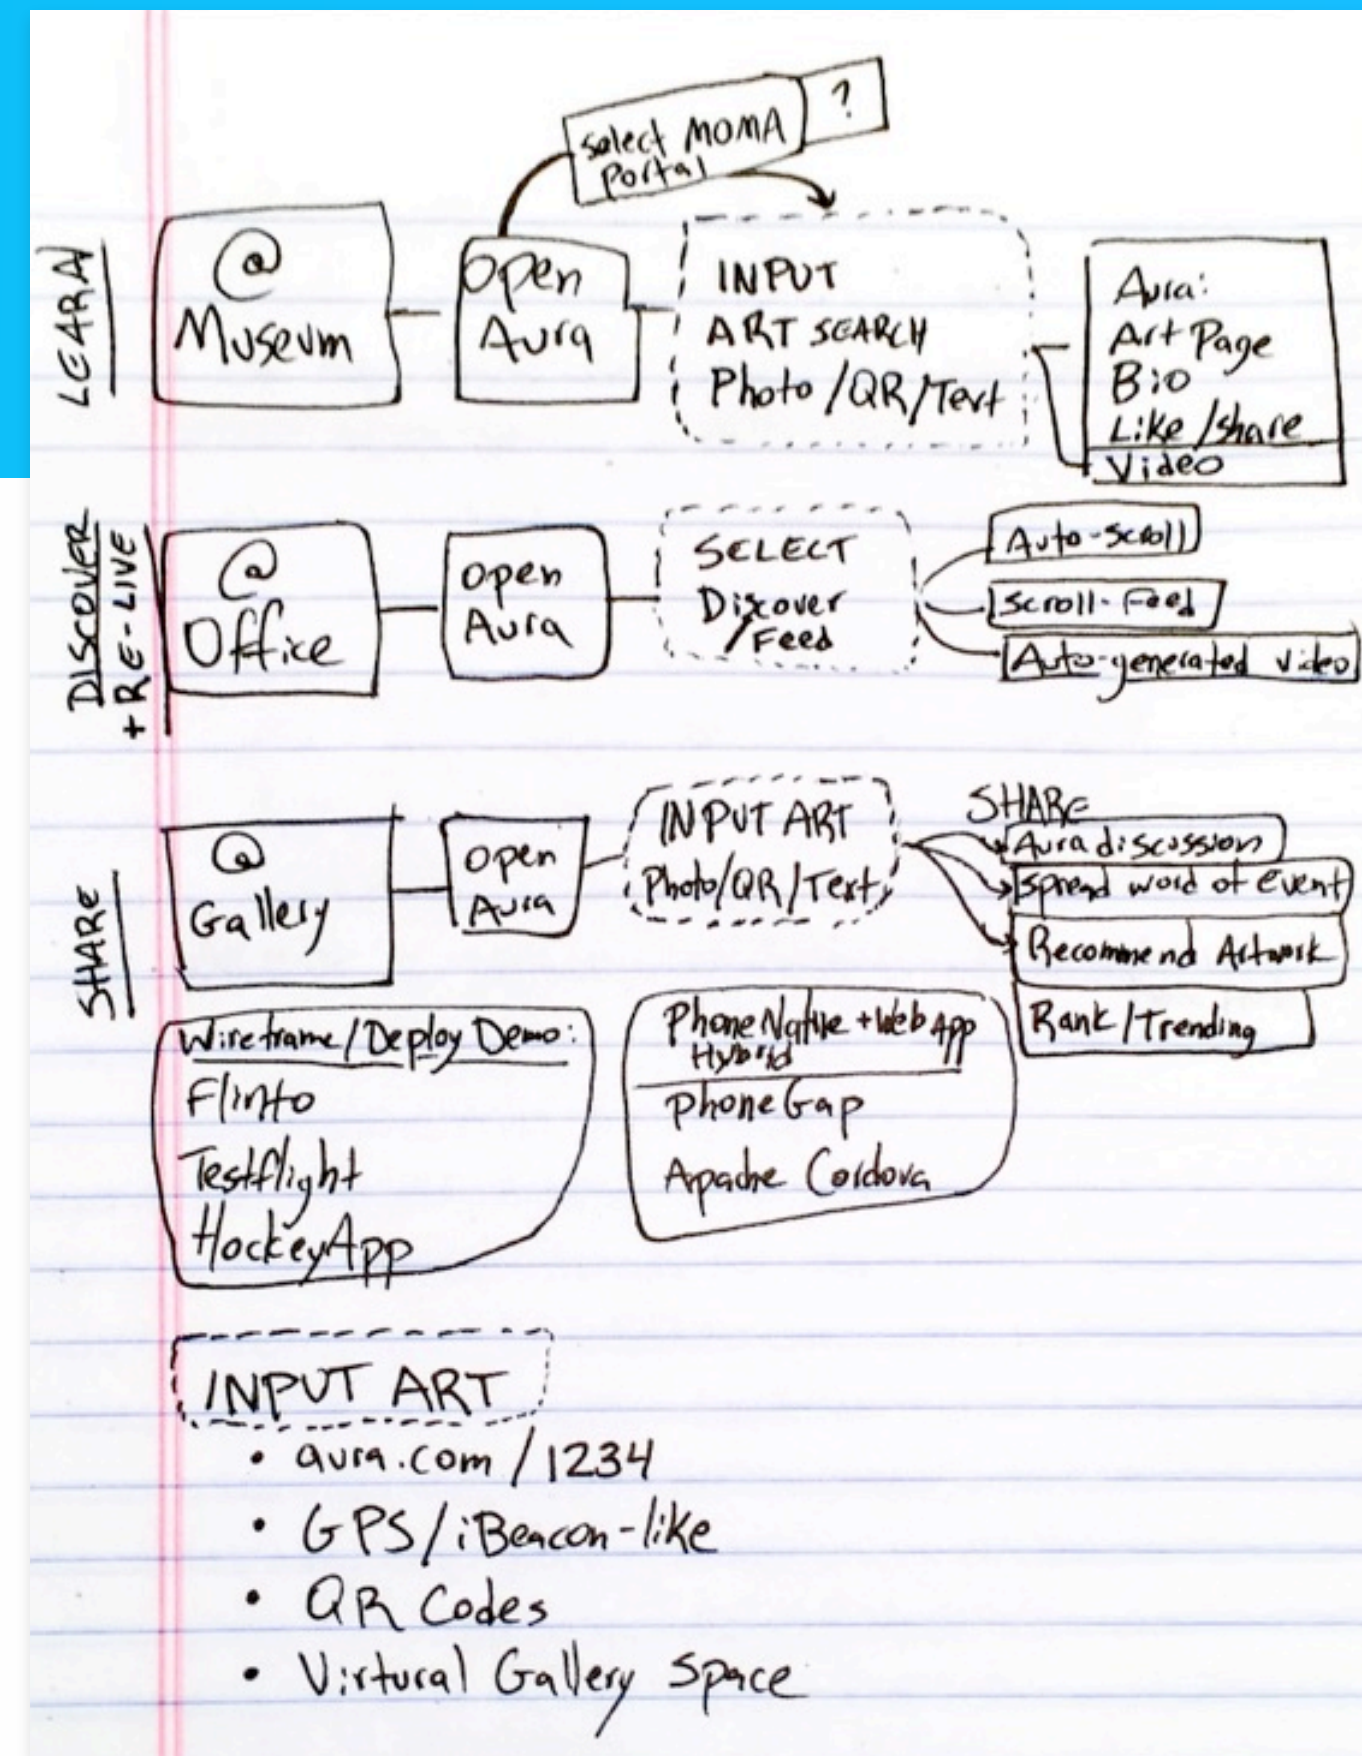 Select MOMA
Portal
?
LEARN
@
Museum
Open
Aura
INPUT
ART SEARCH
Photo/QR/Text
Aura:
Art Page
Bio
Like/share
Video
DISCOVER
+ RE-LIVE
@
Office
open
Aura
SELECT
Discover
/Feed
Auto-scroll
Scroll-Feed
Auto-generated video
SHARE
@
Gallery
open
Aura
INPUT ART
Photo/QR/Text
SHARE
Aura discussion
spread word of event
Recommend Artwork
Rank/Trending
Wireframe/Deploy Demo:
Flinto
Testflight
HockeyApp
Phone Native + Web App
Hybrid
PhoneGap
Apache Cordova
INPUT ART
• aura.com/1234
• GPS/iBeacon-like
• QR Codes
• Virtural Gallery Space